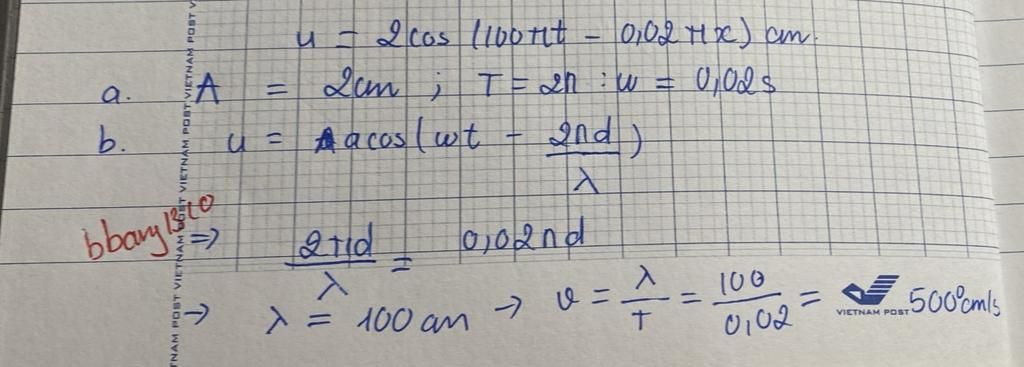 u = 2cos (100πt - 0,02πx) cm.
a. A = 2cm ; T = 2π : ω = 0,02s
b. u = acos(ωt - 2πd/λ)
bbany1310
=> 2πd/λ = 0,02πd
→ λ = 100cm → v = λ/T = 100/0,02 = 5000cm/s
VIETNAM POST
VIETNAM POST VIETNAM POST VIETNAM POST VIETNAM POST